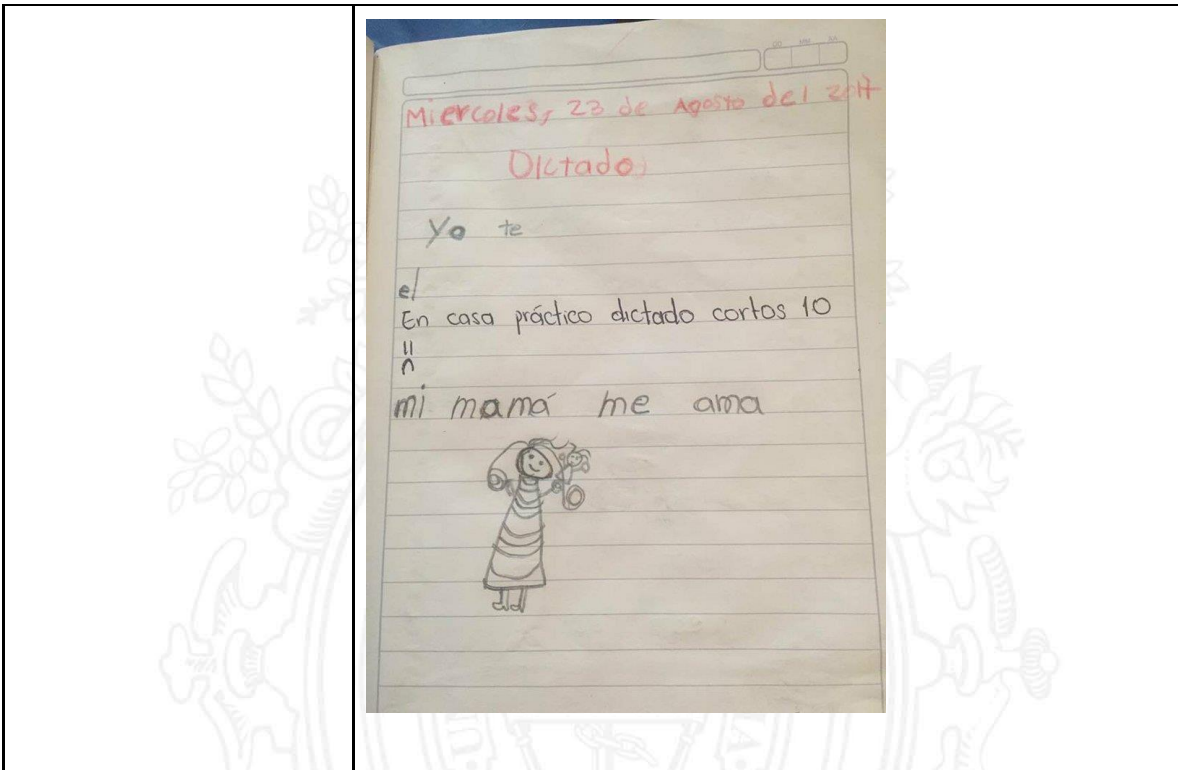 Miercoles, 23 de Agosto del 2017
Dictado
Yo te
el
En casa práctico dictado cortos 10
mi mamá me ama